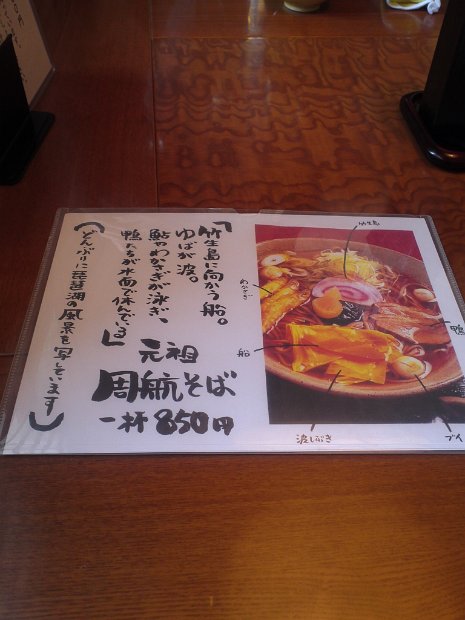 「竹生島に向かう船。
ゆばが波。
鮎やわかさぎが泳ぎ、
鴨たちが水面で休んでいる」
元祖
周航そば
一杯 850円
(どんぶりに琵琶湖の風景を写しています)
竹生島
わかさぎ
鴨
船
波しぶき
ブイ